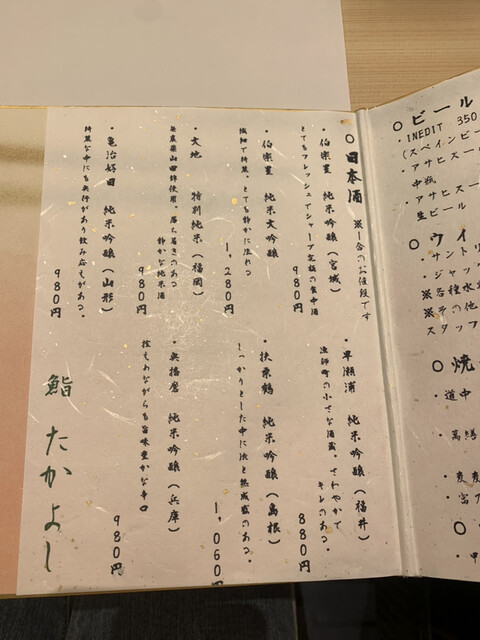 ○ビール
・INEDIT 350
(スペインビー
・アサヒスー
中瓶
・アサヒスー
生ビール
○ウイ
・サントリ
・ジャッ
※各種水
※その他
スタッフ
○焼
・道中
○日本酒 ※一合のお値段です
・伯楽星 純米吟醸(宮城)
とてもフレッシュでシャープ究極の食中酒
980円
・伯楽星 純米大吟醸
繊細で綺麗、とても静かに流れる
1,280円
・大地 特別純米(福岡)
無農薬山田錦使用。落ち着きのある
静かな純米酒
980円
・亀治好日 純米吟醸(山形)
綺麗な中にも奥行があり飲み応えがある。
980円
・早瀬浦 純米吟醸(福井)
漁師町の小さな酒蔵。さわやかで
キレのある。
880円
・扶桑鶴 純米吟醸(島根)
しっかりとした中に渋と熟成感のある。
1,060円
・奥播磨 純米吟醸(兵庫)
控えめながらも旨味豊かな辛口
980円
鮨 たかよし